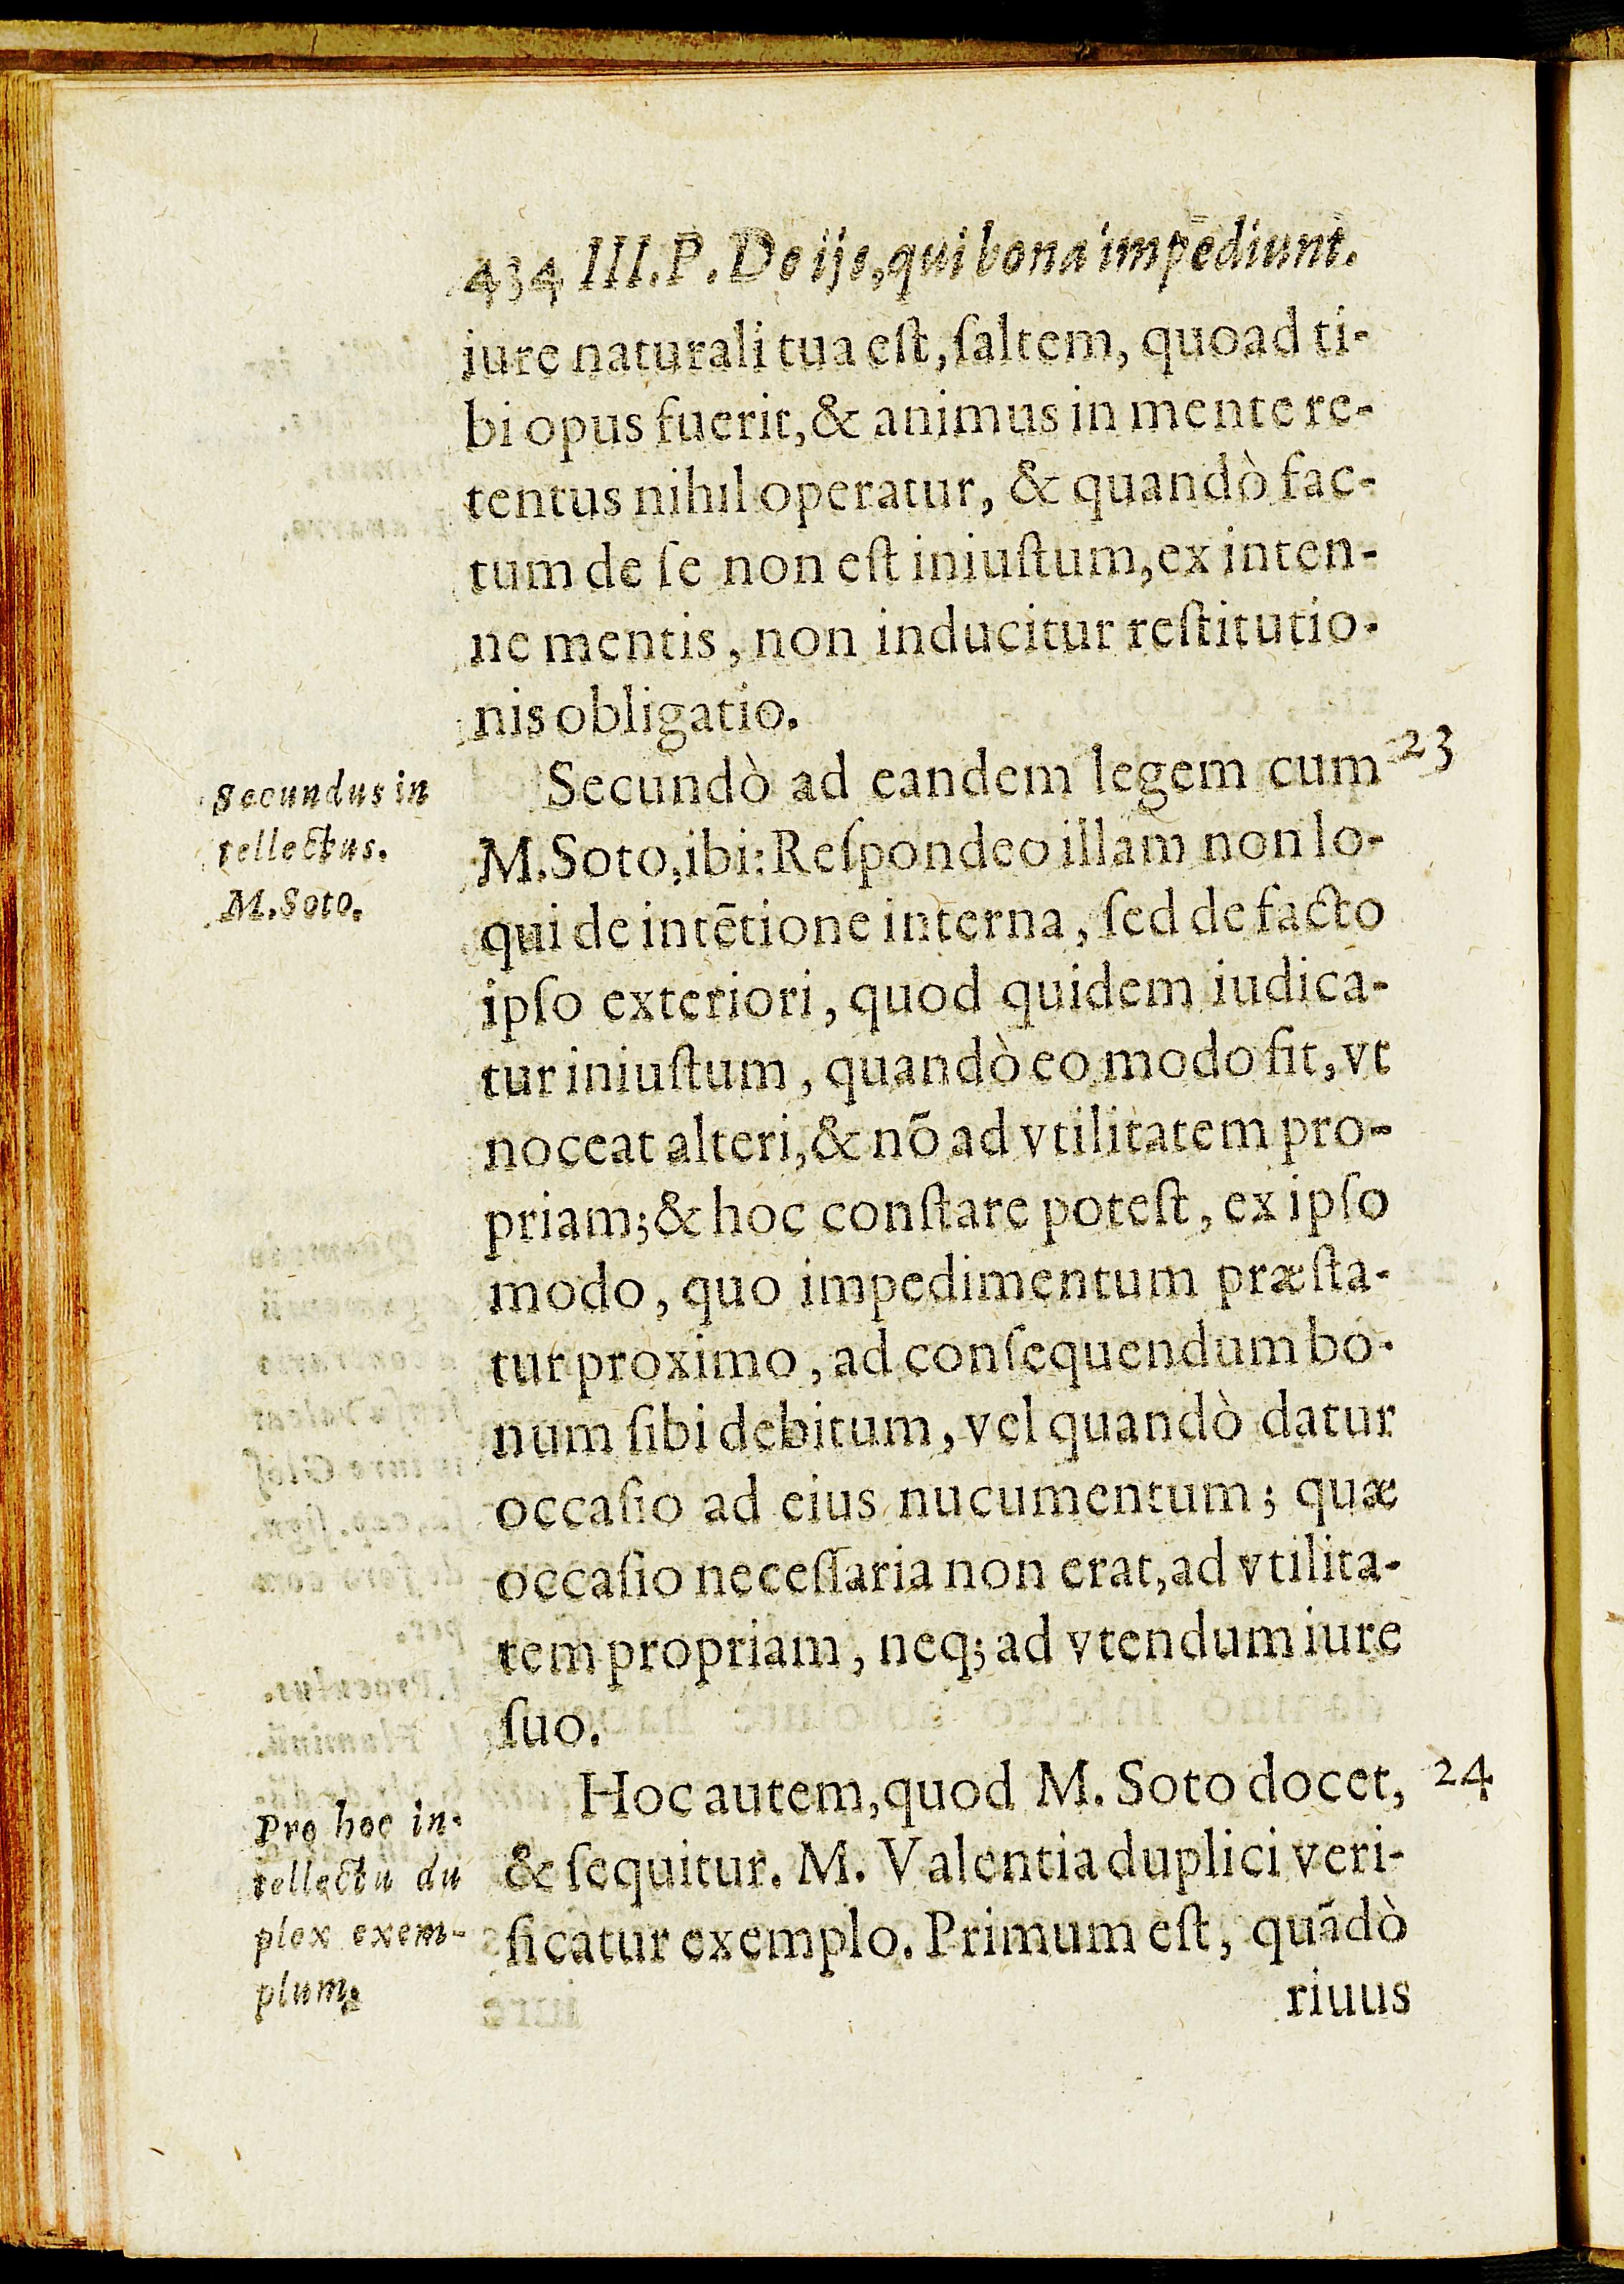 434 III.P. De ijs, qui bona impēdiunt.
iure naturali tua eſt, ſaltem, quoad ti-
bi opus fuerit, & animus in mente re-
tentus nihil operatur, & quandò fac-
tum de ſe non eſt iniuſtum, ex inten-
ne mentis, non inducitur reſtitutio-
nis obligatio.
Secundò ad eandem legem cum 23
Secundus in
tellectus.
M. Soto.
M. Soto, ibi: Reſpondeo illam non lo-
qui de intētione interna, ſed de facto
ipſo exteriori, quod quidem iudica-
tur iniuſtum, quandò eo modo fit, vt
noceat alteri, & nō ad vtilitatem pro-
priam; & hoc conſtare poteſt, ex ipſo
modo, quo impedimentum præſta-
tur proximo, ad conſequendum bo-
num ſibi debitum, vel quandò datur
occaſio ad eius nucumentum; quæ
occaſio neceſſaria non erat, ad vtilita-
tem propriam, neq; ad vtendum iure
ſuo.
Hoc autem, quod M. Soto docet, 24
Pro hoc in-
tellectu du
plex exem-
plum.
& ſequitur. M. Valentia duplici veri-
ficatur exemplo. Primum eſt, quādò
riuus